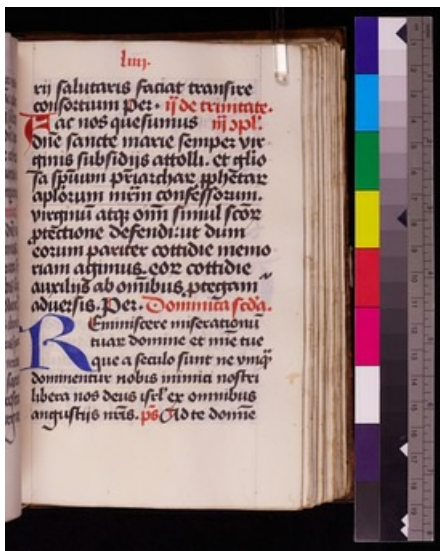 liiii.
rij salutaris faciat transire
consortium Per. ij de trinitate.
Fac nos quesumus iij ɔpl'.
dñe sancte marie semper vir
ginis subsidijs attolli. et glio
sa spūum pr̄iarchar̄ pphetar̄
aplōrum mr̄m confessorum.
virginū atqʒ oīm simul scōr
ptectione defendi: ut dum
eorum pariter cottidie memo
riam agimus. eor cottidie
auxilijs ab om̄ibus ptegam~
aduersis. Per. Dominica scd̄a.
REminiscere miserationū
tuar̄ domine et mīe tue
que a seculo sunt ne vmqʒ
dominentur nobis inimici nostri
libera nos deus isrl' ex omnibus
angustijs nr̄is. ps̄ Ad te domīe